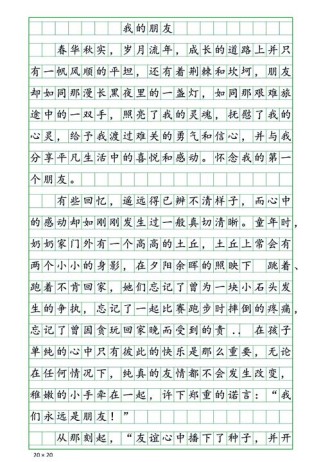 我的朋友
春华秋实，岁月流年，成长的道路上并只
有一帆风顺的平坦，还有着荆棘和坎坷，朋友
却如同那漫长黑夜里的一盏灯，如同那艰难旅
途中的一双手，照亮了我的灵魂，抚慰了我的
心灵，给予我渡过难关的勇气和信心，并与我
分享平凡生活中的喜悦和感动。怀念我的第一
个朋友。
有些回忆，遥远得已辨不清样子，而心中
的感动却如刚刚发生过一般真切清晰。童年时，
奶奶家门外有一个高高的土丘，土丘上常会有
两个小小的身影，在夕阳余晖的照映下 跳着、
跑着不肯回家，她们忘记了曾为一块小石头发
生的争执，忘记了一起比赛跑步时摔倒的疼痛，
忘记了曾因贪玩回家晚而受到的责．．在孩子
单纯的心中只有彼此的快乐是那么重要，无论
在任何情况下，纯真的友情都不会发生改变，
稚嫩的小手牵在一起，许下郑重的诺言：“我
们永远是朋友！”
从那刻起，“友谊心中播下了种子，并开
20×20